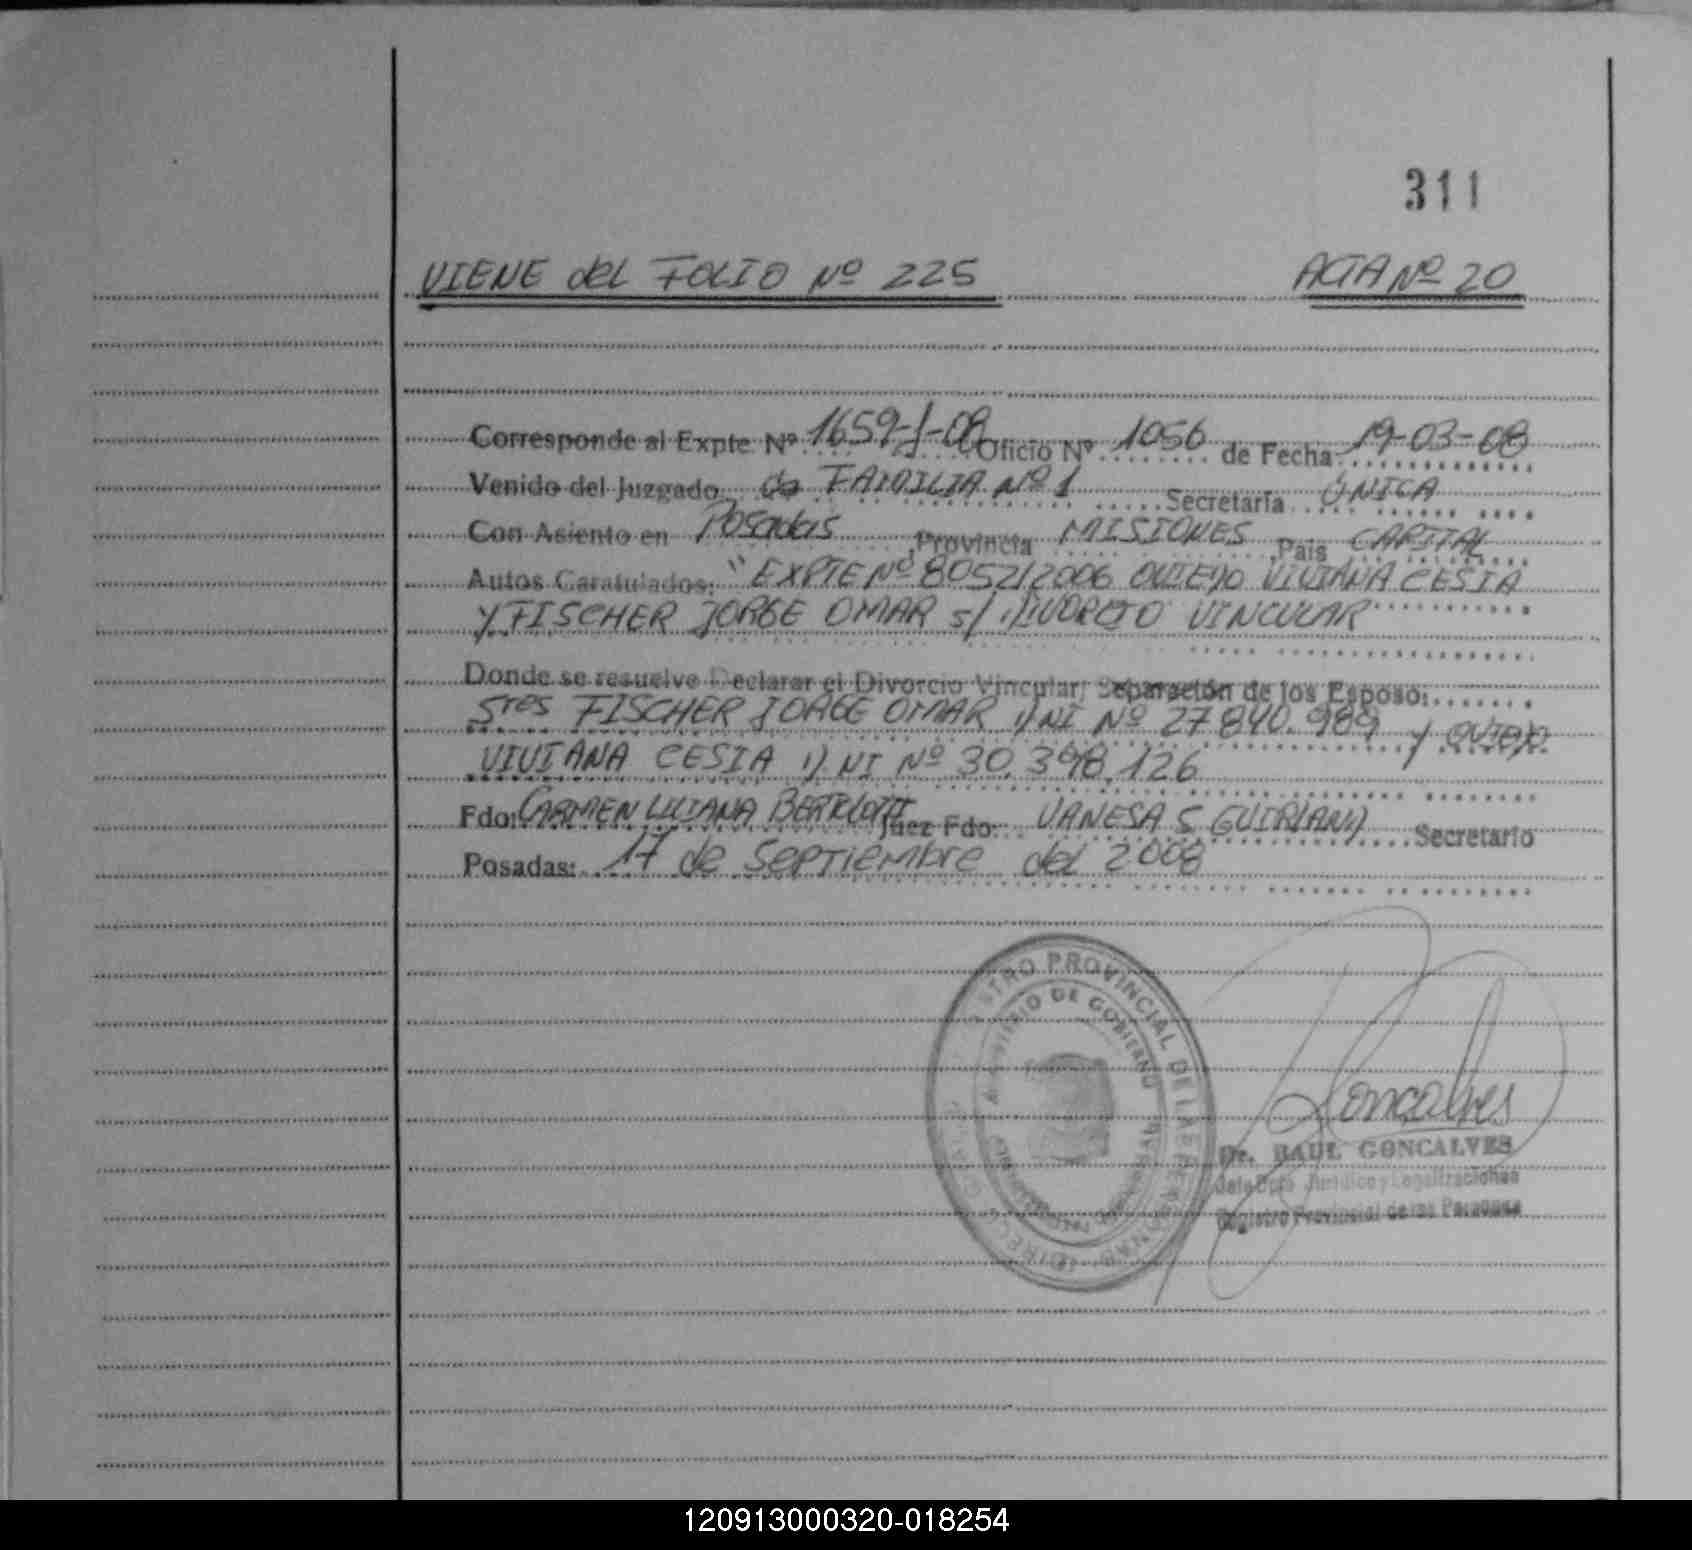 311
VIENE del FOLIO Nº 225 ACTA Nº 20
Corresponde al Expte Nº 1659-J-08 Oficio Nº 1056 de Fecha 19-03-08
Venido del Juzgado de FAMILIA Nº 1 Secretaría ÚNICA
Con Asiento en Posadas, Provincia MISIONES, Pais CAPITAL
Autos Caratulados: "EXPTE Nº 8052/2006 OVIEDO VIVIANA CESIA
Y FISCHER JORGE OMAR s/ DIVORCIO VINCULAR
Donde se resuelve Declarar el Divorcio Vincular, Separación de los Esposo:
Sres FISCHER JORGE OMAR DNI Nº 27.840.989 y OVIEDO
VIVIANA CESIA DNI Nº 30.398.126
Fdo: CARMEN LILIANA Juez Fdo: VANESA S. Secretario
Posadas: 17 de Septiembre del 2008
REGISTRO PROVINCIAL DE LAS PERSONAS
MINISTERIO DE GOBIERNO
Goncalves
Dr. RAUL GONCALVES
Jefe Dpto Jurídico y Legalizaciones
Registro Provincial de las Personas
120913000320-018254